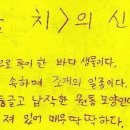 치〉의 신
로 폭이 한 바다 생물이다.
속하며 조개의 일종이다.
둥글고 납작한 원통 모양인데
져 있어 매우 딱딱하다.